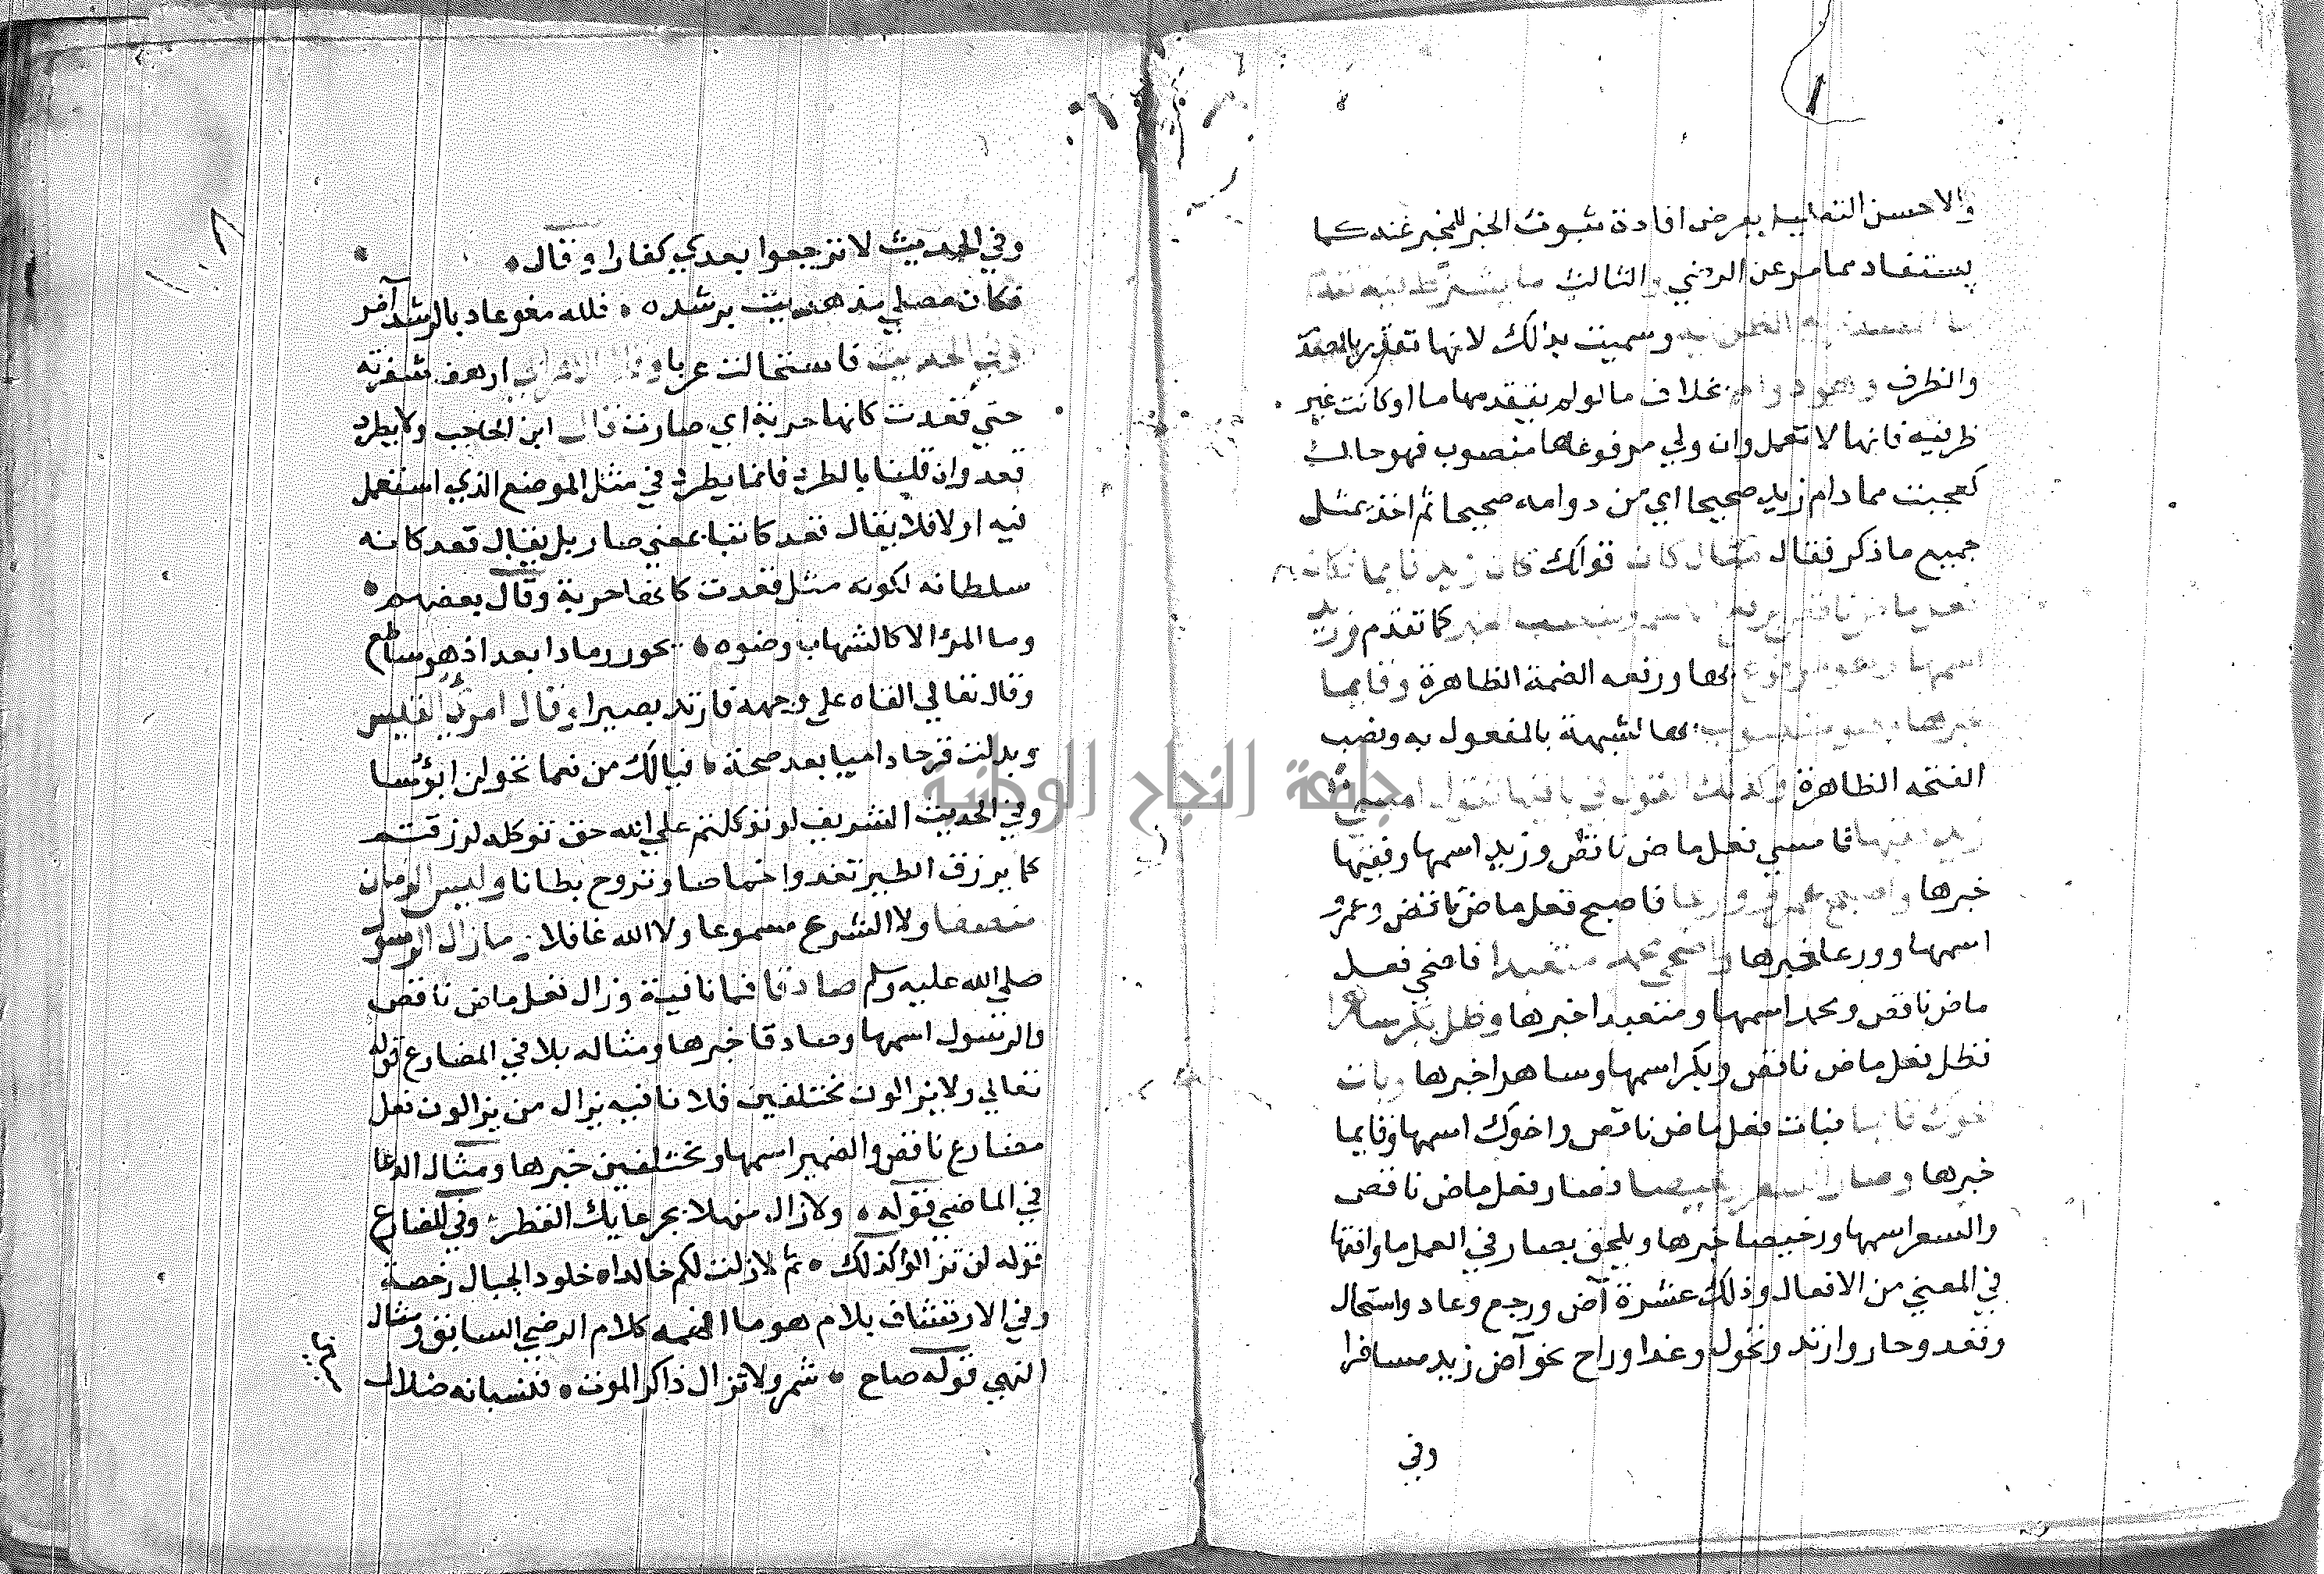 والاحسن التعليل بعرض افادة ثبوت الخبر للمخبر عنه كما
يستفاد مما مر عن الرضي والثالث ما يشترط فيه تقدم
وسميت بذالك لانها تقدر بالمصدر
والظرف وهو دوام بخلاف مالولم يتقدمها ما اوكانت غير
ظرفيه فانها لا تعمل وان ولي مرفوعها منصوب فهو حال
كعجبت مما دام زيد صحيحا اي من دوامه صحيحا ثم اخذ يمثل
جميع ما ذكر فقال مثال كان قولك كان زيد قايما فكان
فعل ماض ناقص يرفع الاسم وينصب الخبر كما تقدم وزيد
اسمها وهو مرفوع بها ورفعه الضمة الظاهرة وقايما
خبرها وهو منصوب بها لشبهة بالمفعول به ونصب
الفتحه الظاهرة وكذلك القول في باقيها تقول امسى
زيد فقيها فامسي فعل ماض ناقص وزيد اسمها وفقيها
خبرها واصبح عمرو ورعا فاصبح فعل ماض ناقص وعمرو
اسمها وورعا خبرها واضحى محمد متعبدا فاضحي فعل
ماض ناقص ومحمد اسمها ومتعبدا خبرها وظل بكر ساهرا
فظل فعل ماض ناقص وبكر اسمها وساهرا خبرها وبات
اخوك قايما فبات فعل ماض ناقص واخوك اسمها وقايما
خبرها وصار السعر رخيصا فصار فعل ماض ناقص
والسعر اسمها ورخيصا خبرها ويلحق بصار في العمل ما وافقها
في المعني من الافعال وذلك عشرة آض ورجع وعاد واستحال
وقعد وحار وارتد وتحول وغدا وراح نحو آض زيد مسافرا
وفي
وفي الحديث لا ترجعوا بعدي كفارا وقال
فكان مضلي من هديت برشده فلله مغو عاد بالرشد آمر
وفي الحديث فاستحالت غربا ارهف شفرته
حتي قعدت كانها حربة اي صارت قال ابن الحاجب ولا يطرد
قعد وان قلنا بالطرد فانما يطرد في مثل الموضع الذي استعمل
فيه اولا فلا يقال قعد كاتبا بمعني صار بل يقال قعد كانه
سلطانه لكونه مثل قعدت كانها حربة وقال بعضهم
وما المرؤ الا كالشهاب وضوه يحور رمادا بعد اذ هو ساطع
وقال تعالي القاه علي وجهه فارتد بصيرا وقال امرؤ القيس
وبدلت قرحا داميا بعد صحة فيالك من نعما تحولن ابؤسا
وفي الحديث الشريف لو توكلتم علي الله حق توكله لرزقتم
كما يرزق الطير تغدوا خماصا وتروح بطانا وليس الزمان
منصفا ولا الشرع مسموعا ولا الله غافلا وما زال الرسول
صلي الله عليه وسلم صادقا فما نافية وزال فعل ماض ناقص
والرسول اسمها وصادقا خبرها ومثاله بلا في المضارع قوله
تعالي ولا يزالون مختلفين فلا نافيه يزال من يزالون فعل
مضارع ناقص والضمير اسمها ومختلفين خبرها ومثال الدعا
في الماضي قوله ولا زال منهلا بجرعايك القطر وفي المضارع
قوله لن تزالوا كذلك ثم لا زلت لكم خالدا خلود الجبال
وفي الارتشاف بلام هو ما افهمه كلام الرضي السابق ومثال
النهي قوله صاح شمر ولا تزال ذاكر الموت فنسيانه ضلال
جامعة النجاح الوطنية